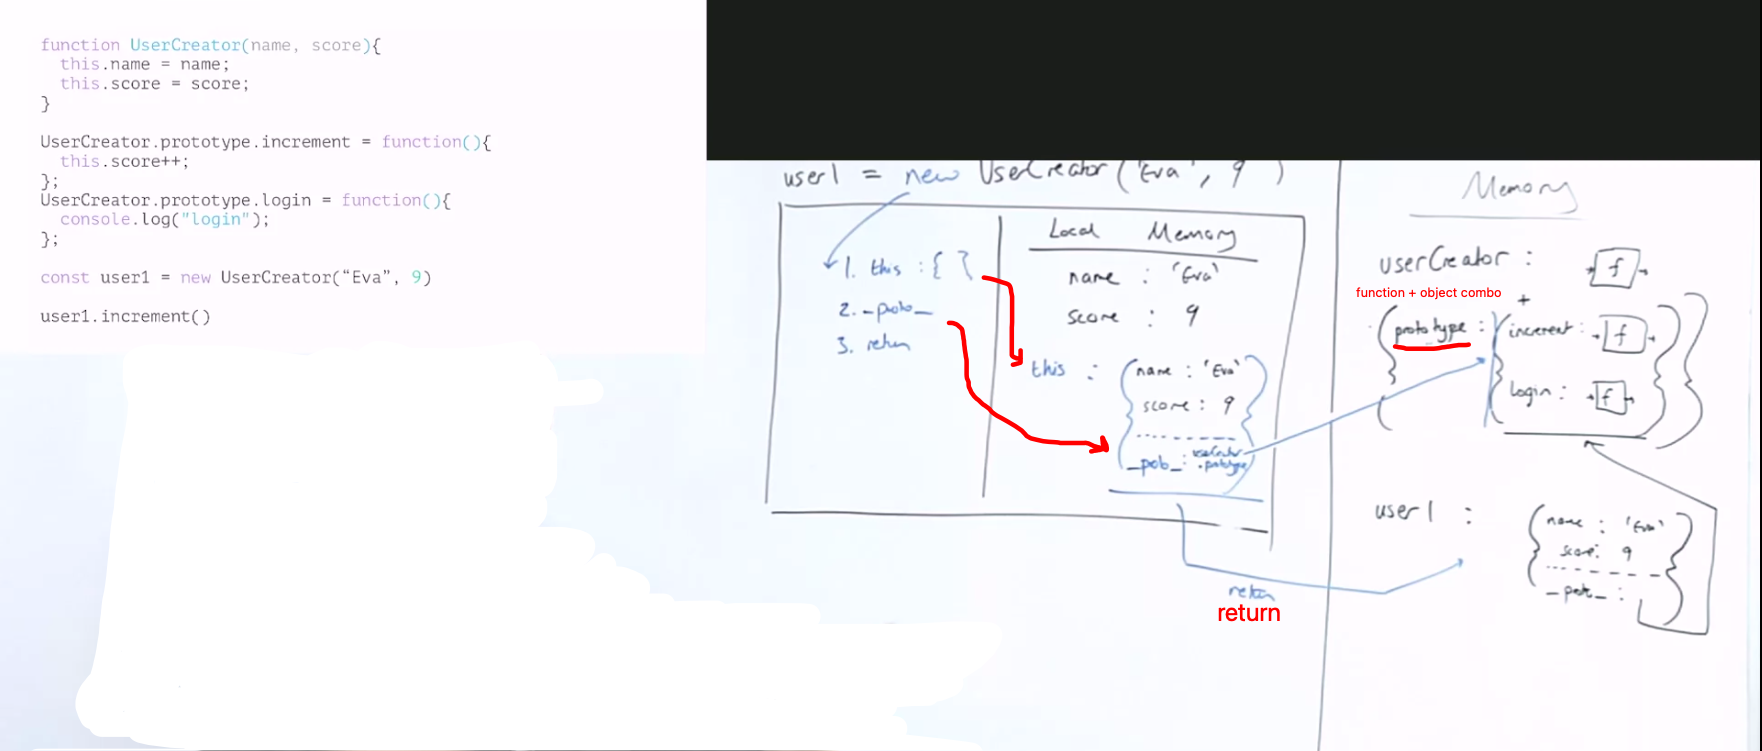 function UserCreator(name, score){
this.name = name;
this.score = score;
}
UserCreator.prototype.increment = function(){
this.score++;
};
UserCreator.prototype.login = function(){
console.log("login");
};
const user1 = new UserCreator(“Eva”, 9)
user1.increment()
user1 = new UserCreator('Eva', 9)
1. this : { }
2. _proto_
3. return
Local Memory
name : 'Eva'
score : 9
this : { name : 'Eva'
score : 9
_proto_ : userCreator
.prototype }
return
return
Memory
userCreator : f
function + object combo
+
{ prototype : { increment : f
login : f } }
user1 : { name : 'Eva'
score : 9
_proto_ : }